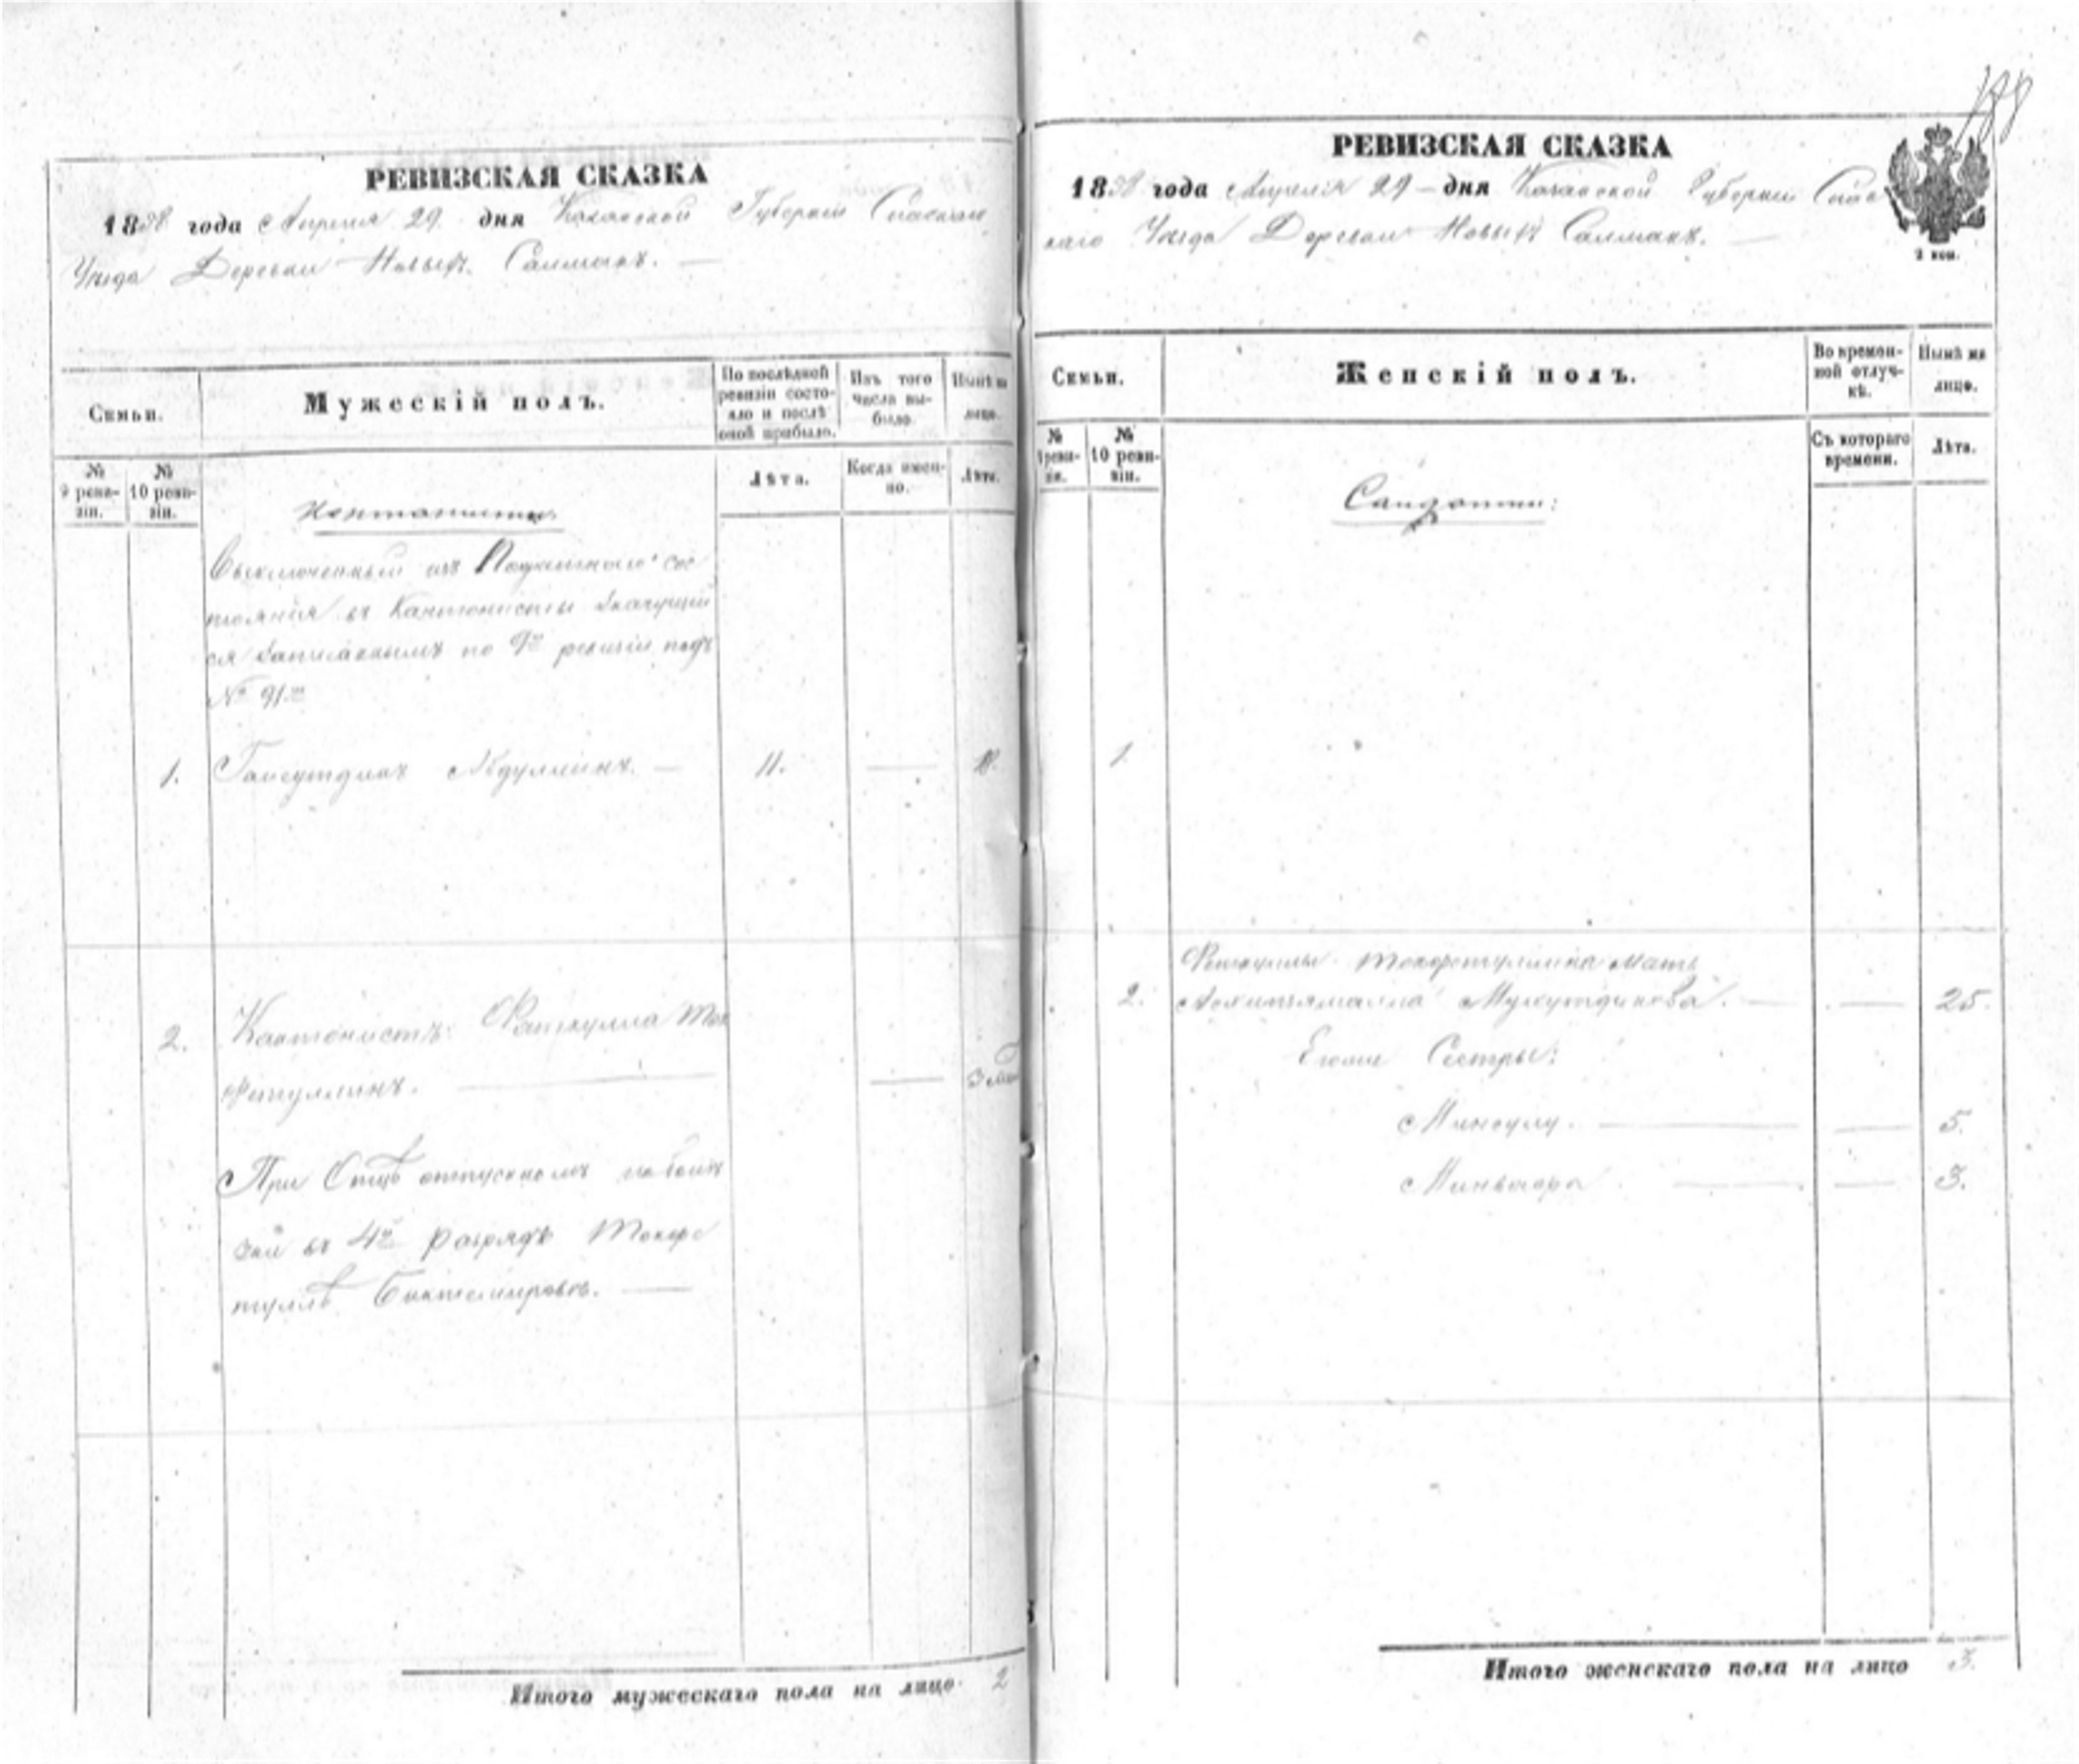 РЕВИЗСКАЯ СКАЗКА
1858 года Апреля 29 дня Казанской Губернiи Спаскаго
Уѣзда Деревни Новыхъ Салманъ. —
Семьи.
Мужескiй полъ.
По послѣдней ревизiи состояло и послѣ оной прибыло.
Изъ того числа выбыло.
Нынѣ на лицо.
№ 9 ревизiи.
№ 10 ревизiи.
Лѣта.
Когда именно.
Лѣта.
Кантонисты.
изъ Податнаго сос
тоянiя въ Кантонисты
ся записаннымъ по 9й ревизiи подъ
№ 91м
1. Гайсутдинъ Абдуллинъ. — 11. —
2. Кантонистъ: Фаткулла Мох
фатуллинъ. — — 3
При Отцѣ отпускномъ
въ 4й разрядъ
туллѣ Бихтемировѣ. —
Итого мужескаго пола на лицо 2
188
РЕВИЗСКАЯ СКАЗКА
1858 года Апреля 29 — дня Казанской Губернiи Спас
каго Уѣзда Деревни Новыхъ Салманъ. —
2 коп.
Семьи.
Женскiй полъ.
Во временной отлучкѣ.
Нынѣ на лицо.
№ 9 ревизiи.
№ 10 ревизiи.
Съ котораго времени.
Лѣта.
1.
Фаткуллы мать
2. — — 25.
Егоже Сестры:
Минсулу. — — 5.
— — 3.
Итого женскаго пола на лицо 3.